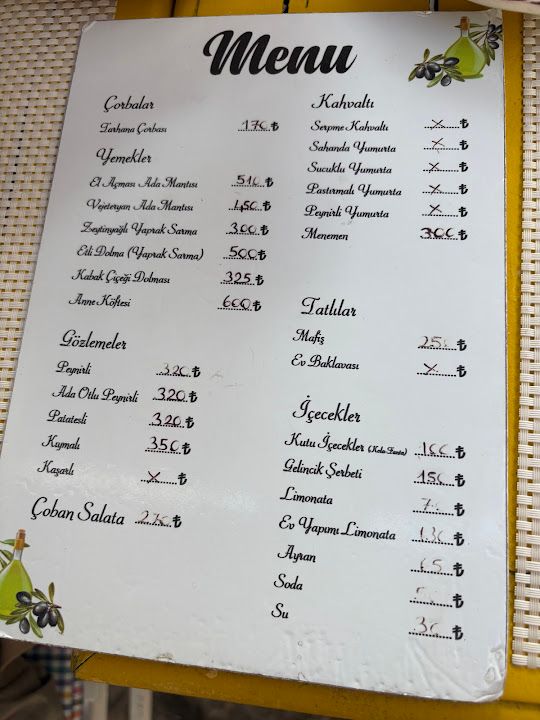 Menu
Çorbalar
Tarhana Çorbası 170 ₺
Yemekler
El Açması Ada Mantısı 510 ₺
Vejeteryan Ada Mantısı 450 ₺
Zeytinyağlı Yaprak Sarma 300 ₺
Etli Dolma (Yaprak Sarma) 500 ₺
Kabak Çiçeği Dolması 325 ₺
Anne Köftesi 600 ₺
Gözlemeler
Peynirli 320 ₺
Ada Otlu Peynirli 320 ₺
Patatesli 320 ₺
Kıymalı 350 ₺
Kaşarlı X ₺
Çoban Salata 270 ₺
Kahvaltı
Serpme Kahvaltı X ₺
Sahanda Yumurta X ₺
Sucuklu Yumurta X ₺
Pastırmalı Yumurta X ₺
Peynirli Yumurta X ₺
Menemen 300 ₺
Tatlılar
Mafiş ₺
Ev Baklavası X ₺
İçecekler
Kutu İçecekler (Kola Fanta) 100 ₺
Gelincik Şerbeti 150 ₺
Limonata ₺
Ev Yapımı Limonata 130 ₺
Ayran 65 ₺
Soda ₺
Su 30 ₺